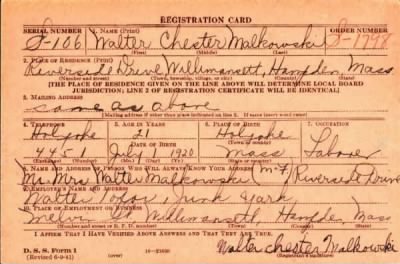 REGISTRATION CARD
SERIAL NUMBER 1. NAME (Print) ORDER NUMBER
S-106 Walter Chester Malkowski S-1798
(First) (Middle) (Last)
2. PLACE OF RESIDENCE (Print)
Riverside Drive Willimansett, Hampden, Mass
(Number and street) (Town, township, village, or city) (County) (State)
[THE PLACE OF RESIDENCE GIVEN ON THE LINE ABOVE WILL DETERMINE LOCAL BOARD
JURISDICTION; LINE 2 OF REGISTRATION CERTIFICATE WILL BE IDENTICAL]
3. MAILING ADDRESS
same as above
[Mailing address if other than place indicated on line 2. If same, insert word same]
4. TELEPHONE 5. AGE IN YEARS 6. PLACE OF BIRTH 7. OCCUPATION
Holyoke 21 Holyoke Laborer
DATE OF BIRTH
4451 1920 Mass
(Exchange) (Number) (Mo.) (Day) (Yr.) (State or country)
8. NAME AND ADDRESS OF PERSON WHO WILL ALWAYS KNOW YOUR ADDRESS
Mr. Mrs. Walter Malkowski (M-F) Riverside Drive
9. EMPLOYER'S NAME AND ADDRESS
Walter Junk Yard
10. PLACE OF EMPLOYMENT OR BUSINESS
St. Willimansett, Hampden, Mass
(Number and street or R. F. D. number) (Town) (County) (State)
I AFFIRM THAT I HAVE VERIFIED ABOVE ANSWERS AND THAT THEY ARE TRUE.
D. S. S. Form 1
(Revised 6-9-41) (over) Walter Chester Malkowski